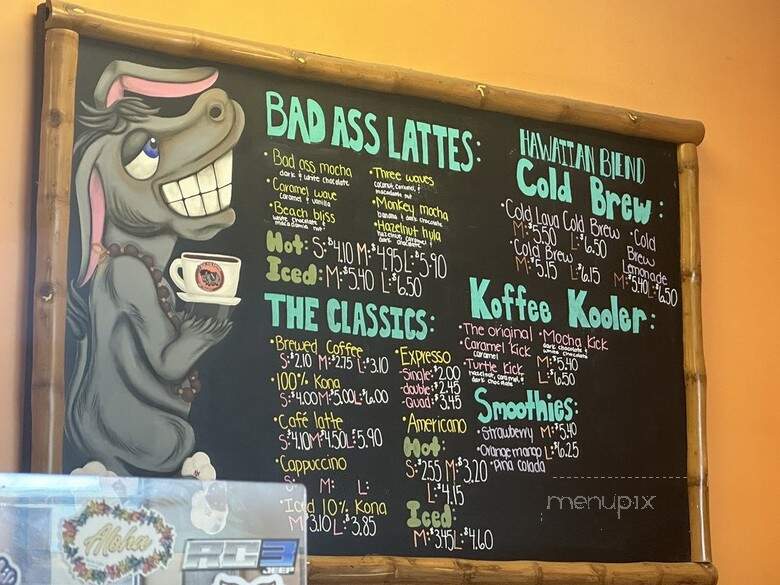 BAD ASS LATTES:
• Bad ass mocha
dark & white chocolate
• Caramel wave
caramel & vanilla
• Beach bliss
white chocolate
macadamia nut
• Three waves
coconut, caramel, &
macadamia nut
• Monkey mocha
banana & dark chocolate
• Hazelnut hula
hazelnut, caramel,
dark chocolate
Hot: S: $4.10 M: $4.95 L: $5.90
Iced: M: $5.40 L: $6.50
THE CLASSICS:
• Brewed Coffee
S: $2.10 M: $2.75 L: $3.10
• 100% Kona
S: $4.00 M: $5.00 L: $6.00
• Café latte
S: $4.10 M: $4.50 L: $5.90
• Cappuccino
S: M: L:
• Iced 10% Kona
M: $3.10 L: $3.85
• Expresso
Single: $2.00
double: $2.45
Quad: $3.45
• Americano
Hot:
S: $2.55 M: $3.20
L: $4.15
Iced:
M: $3.45 L: $4.60
HAWAIIAN BLEND
Cold Brew:
• Cold Lava Cold Brew
M: $5.50 L: $6.50
• Cold Brew
M: $5.15 L: $6.15
• Cold
Brew
Lemonade
M: $5.40 L: $6.50
Koffee Kooler:
• The original
• Caramel Kick
caramel
• Turtle Kick
hazelnut, caramel, &
dark chocolate
• Mocha Kick
dark chocolate &
white chocolate
M: $5.40
L: $6.50
Smoothies:
• Strawberry M: $5.40
• Orange mango L: $6.25
• Pina colada
menupix
Aloha
RC3
JEEP